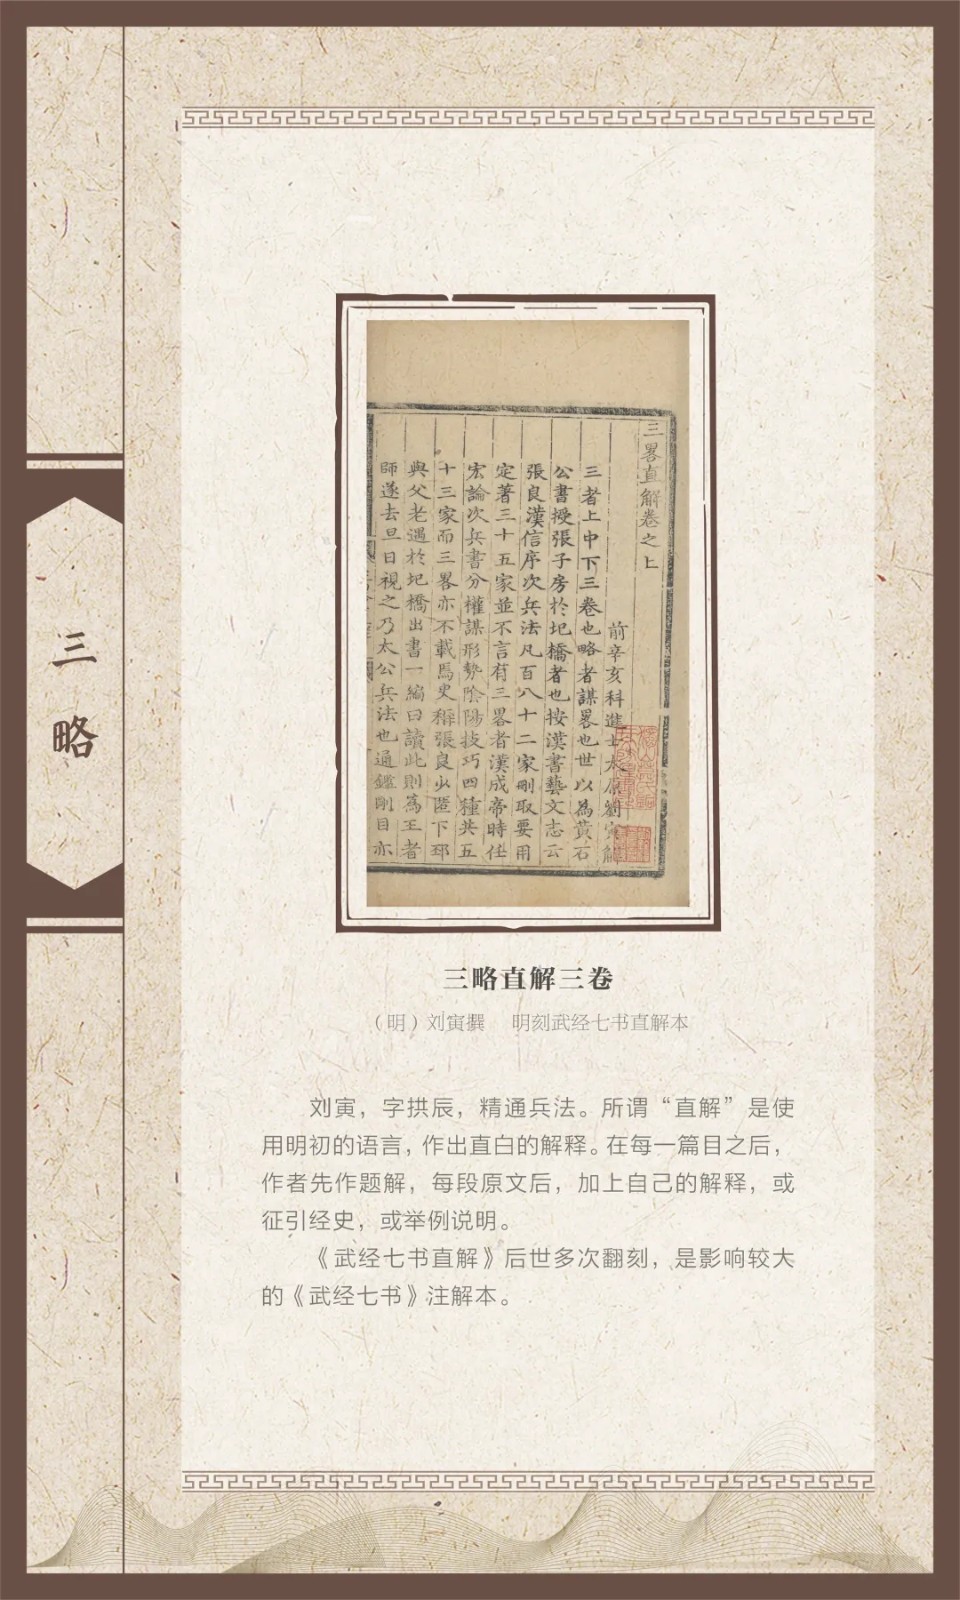 三略
三畧直解卷之上
前辛亥科進士太原劉寅解
三者上中下三卷也略者謀畧也世以為黄石
公書授張子房於圯橋者也按漢書藝文志云
張良漢信序次兵法凡百八十二家刪取要用
定著三十五家並不言有三畧者漢成帝時任
宏論次兵書分權謀形勢陰陽技巧四種共五
十三家而三畧亦不載焉史稱張良少匿下邳
與父老遇於圯橋出書一編曰讀此則為王者
師遂去旦日視之乃太公兵法也通鑑剛目亦
三略直解三卷
（明）刘寅撰 明刻武经七书直解本
刘寅，字拱辰，精通兵法。所谓“直解”是使
用明初的语言，作出直白的解释。在每一篇目之后，
作者先作题解，每段原文后，加上自己的解释，或
征引经史，或举例说明。
《武经七书直解》后世多次翻刻，是影响较大
的《武经七书》注解本。